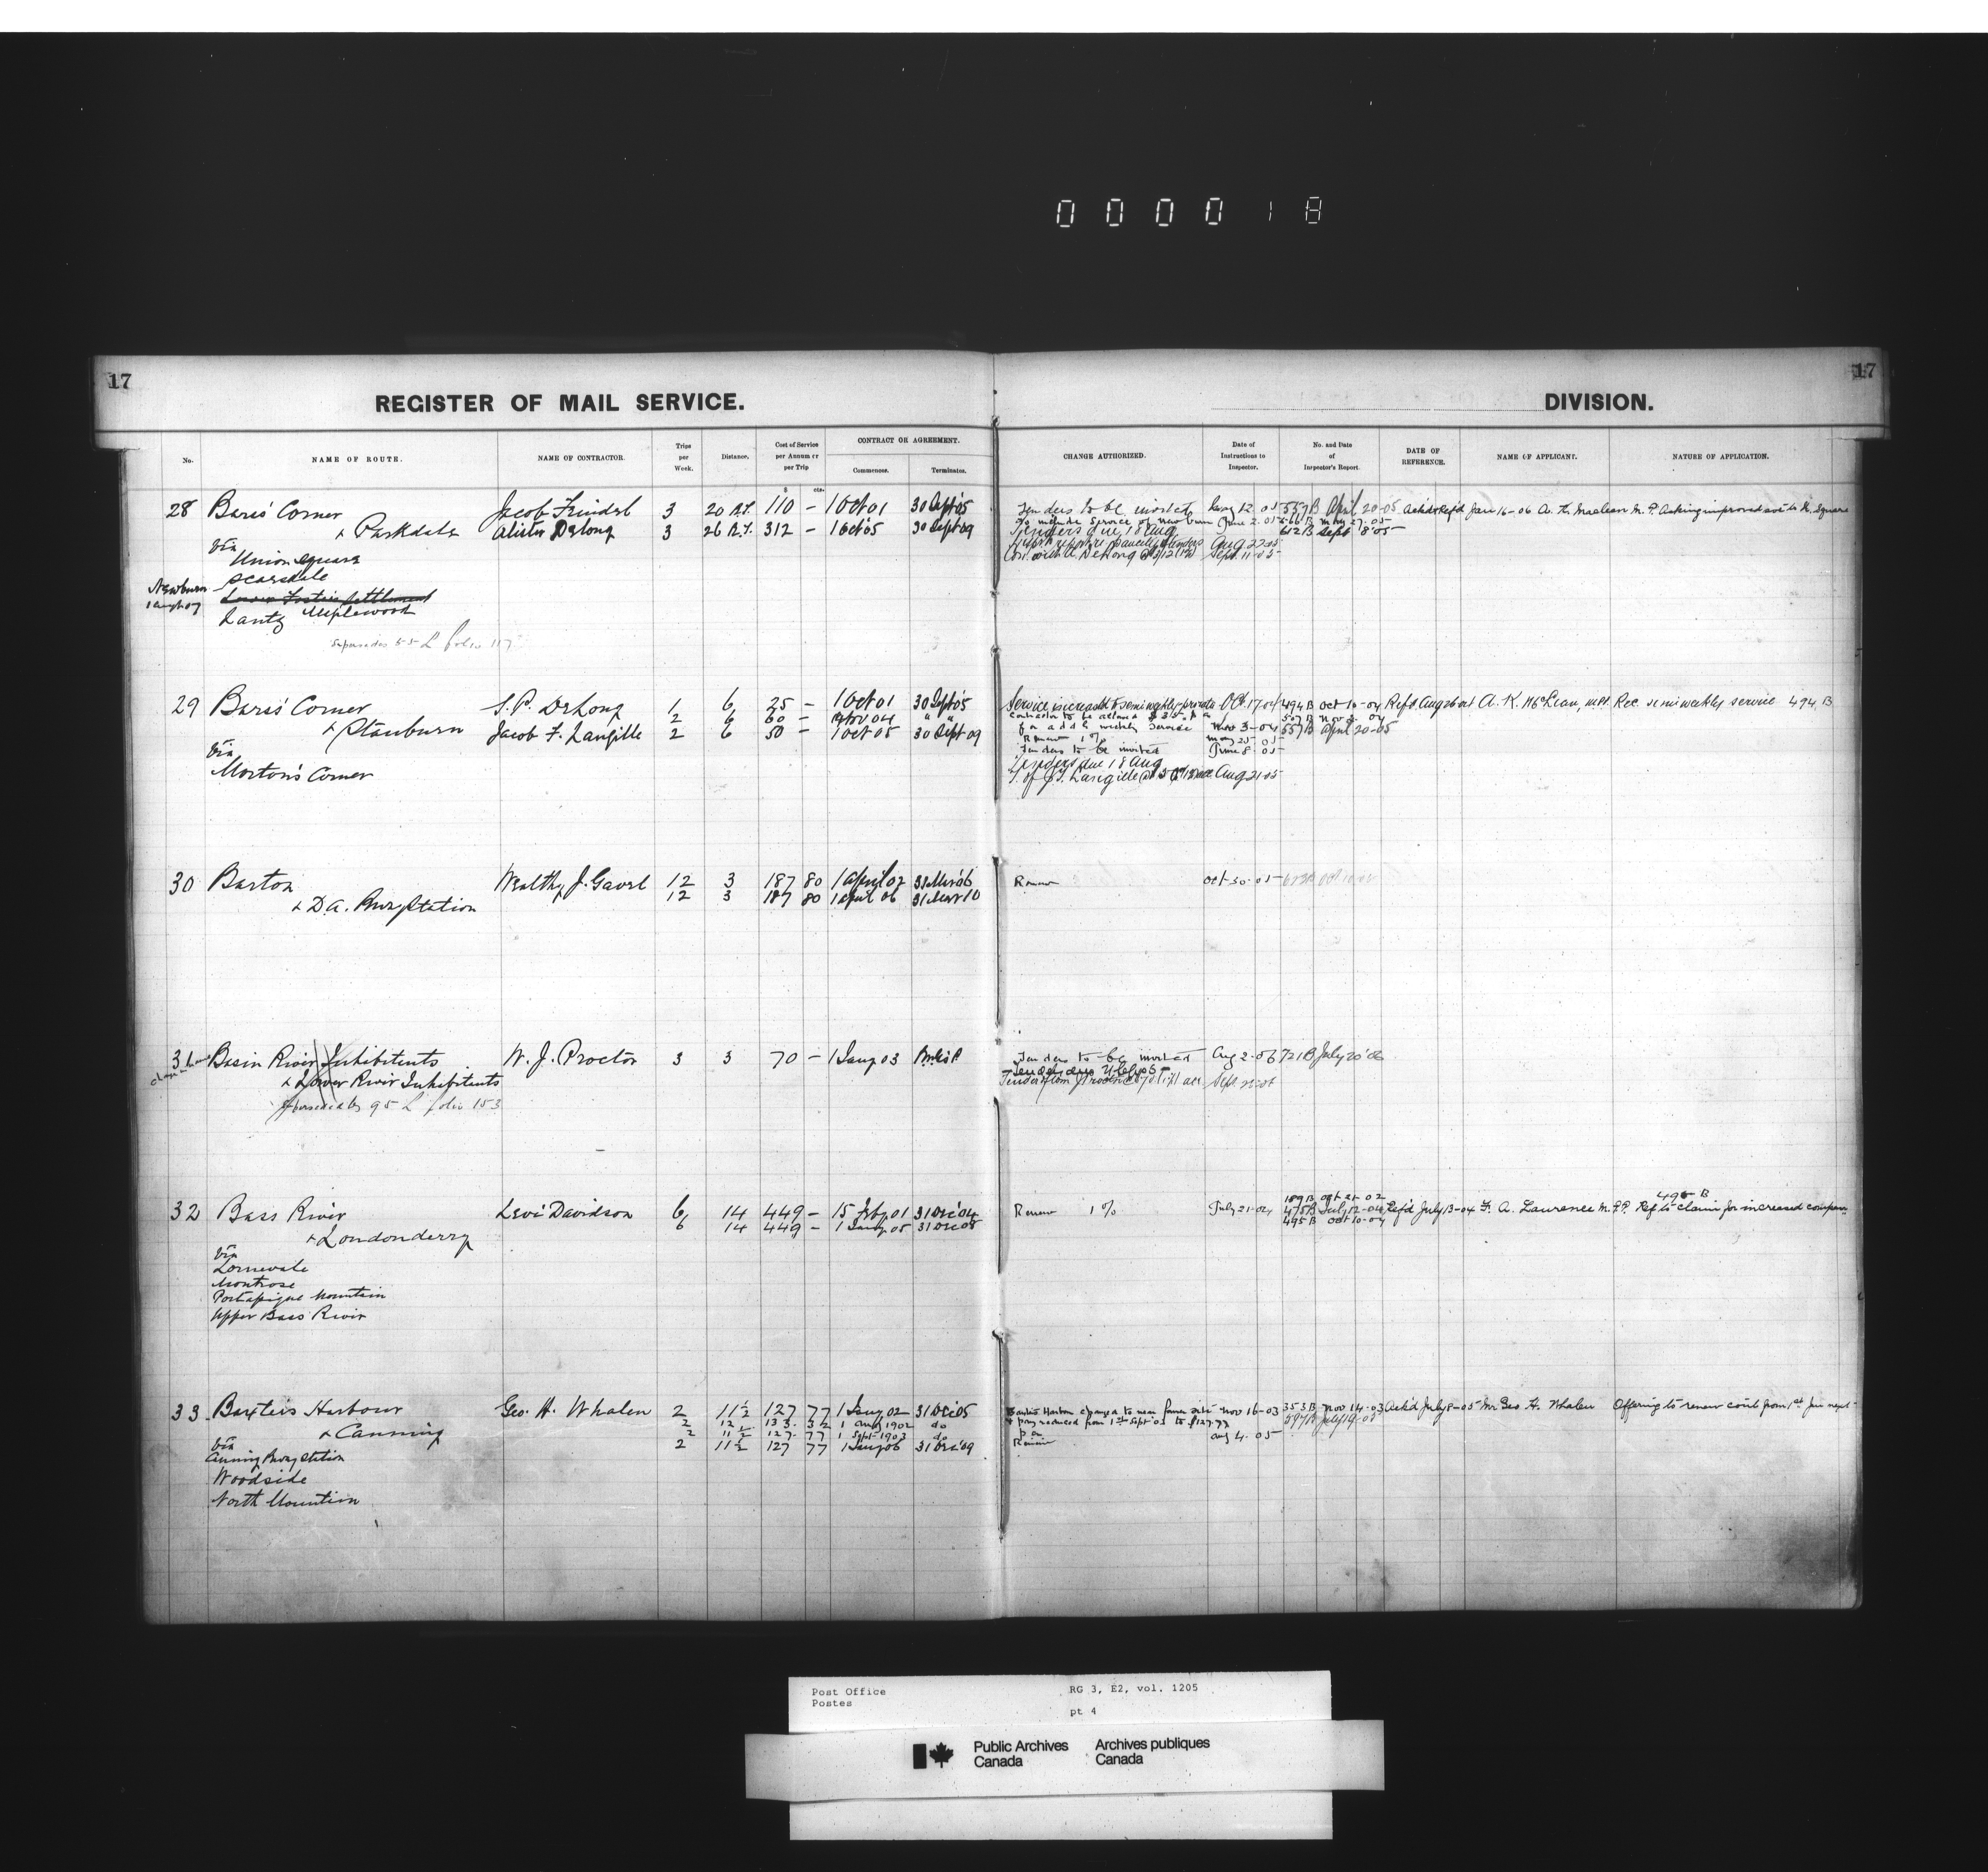 000018
17
17
REGISTER OF MAIL SERVICE.
DIVISION.
No.
NAME OF ROUTE.
NAME OF CONTRACTOR.
Trips per Week.
Distance.
Cost of Service per Annum or per Trip
CONTRACT OR AGREEMENT.
Commences.
Terminates.
CHANGE AUTHORIZED.
Date of Instructions to Inspector.
No. and Date of Inspector's Report.
DATE OF REFERENCE.
NAME OF APPLICANT.
NATURE OF APPLICATION.
$ cts.
28 Barss' Corner Jacob 3 20 R.T. 110 – 1 Oct 01 30 Sept 05 Tenders to be invited 12 05 557 B April 20-05 Jan 16-06 A. K. Maclean M.P. Asking improved
& Parkdale DeLong 3 26 R.T. 312 – 1 Oct 05 30 Sept 09 to include service of Newburn June 2. 05 May 27-05
Tenders due 18 Aug 612 B Sept 8-05
Aug 22-05
Sept. 11-05
Via
Union Square
Scarsdale
Newburn
Lantz Maplewood
Supersedes L folio 117
29 Barss' Corner S. P. DeLong 1 6 25 – 1 Oct 01 30 Sept 05 Service increased to semi weekly Oct. 17-04 494 B Oct 10-04 Refd. Aug 26 04 A. K. McLean, M.P. Rec. semi weekly service 494 B
& Stanburn 2 6 60 – Nov 04 " " Contractor to be allowed $35. p a 507 B Nov 2. 04
Jacob F. Langille 2 6 50 – 1 Oct 05 30 Sept 09 for add'l weekly service Nov 3-04 557 B April 20-05
Renew 1% May 25 05
Via
Tenders to be invited June 8. 05
Morton's Corner
Tenders due 18 Aug
T. of J. F. Langille Aug 21-05
30 Barton Wealthy J. Gavel 12 3 187 80 1 April 02 31 Mar 06 Renew Oct 30-05
& D.A. Rwy Station 12 3 187 80 1 April 06 31 Mar 10
31 Basin River Inhabitents W. J. Proctor 3 3 70 – 1 Jany 03 Tenders to be invited Aug 2-06 721 B July 20 06
& Lower River Inhabitents
Superseded by 95 L folio 153
32 Bass River Levi Davidson 6 14 449 – 15 Feby 01 31 Dec 04 Renew 1% July 21-04 189 B Oct 21-02
6 14 449 – 1 Jany 05 31 Dec 08 475 B July 12-04 Refd July 13-04 F. A. Laurence M.P. Ref to claim for increased compen 495 B
& Londonderry 495 B Oct 10-04
Via
Lornevale
Montrose
Portapique Mountain
Upper Bass River
33 Baxters Harbour Geo. H. Whalen 2 11½ 127 77 1 Jany 02 31 Dec 05 Baxters Harbour changed to near former site Nov 16-03 353 B Nov 14-03 Ackd July 8-05 Mr Geo H. Whalen Offering to renew cont from 1st Jan next
2 12 133. 32 1 Aug 1902 do & pay reduced from 1st Sept 03 to $127.77 597 B July 19-05
& Canning 2 11½ 127. 77 1 Sept 1903 do p a
2 11½ 127 77 1 Jany 06 31 Dec 09 Renew Aug 4. 05
Via
Canning Rwy station
Woodside
North Mountain
Post Office
Postes
RG 3, E2, vol. 1205
pt 4
Public Archives
Canada
Archives publiques
Canada